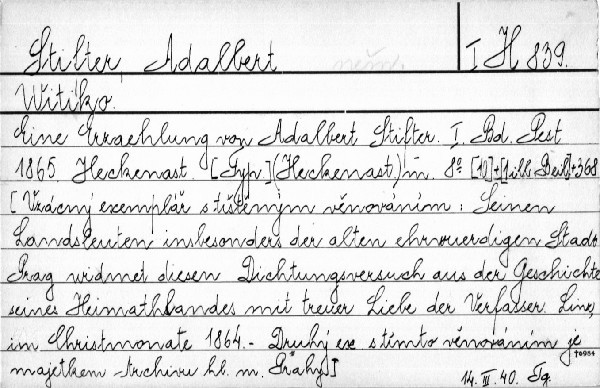 Stifter, Adalbert něm. I H 839.
Witiko.
Eine Erzaehlung von Adalbert Stifter. I. Bd. Pest
1865. Heckenast. [Typ.](Heckenast) m. 8º [10]+[1 ill. Beil.]+368
[Vzácný exemplář s tištěným věnováním: Seinen
Landsleuten, insbesonders der alten ehrwuerdigen Stadt
Prag widmet diesen Dichtungsversuch aus der Geschichte
seines Heimathlandes mit treuer Liebe der Verfasser. Linz,
im Christmonate 1864.- Druhý ex. s tímto věnováním je
majetkem Archivu hl. m. Prahy]
14. III. 40. Tg.